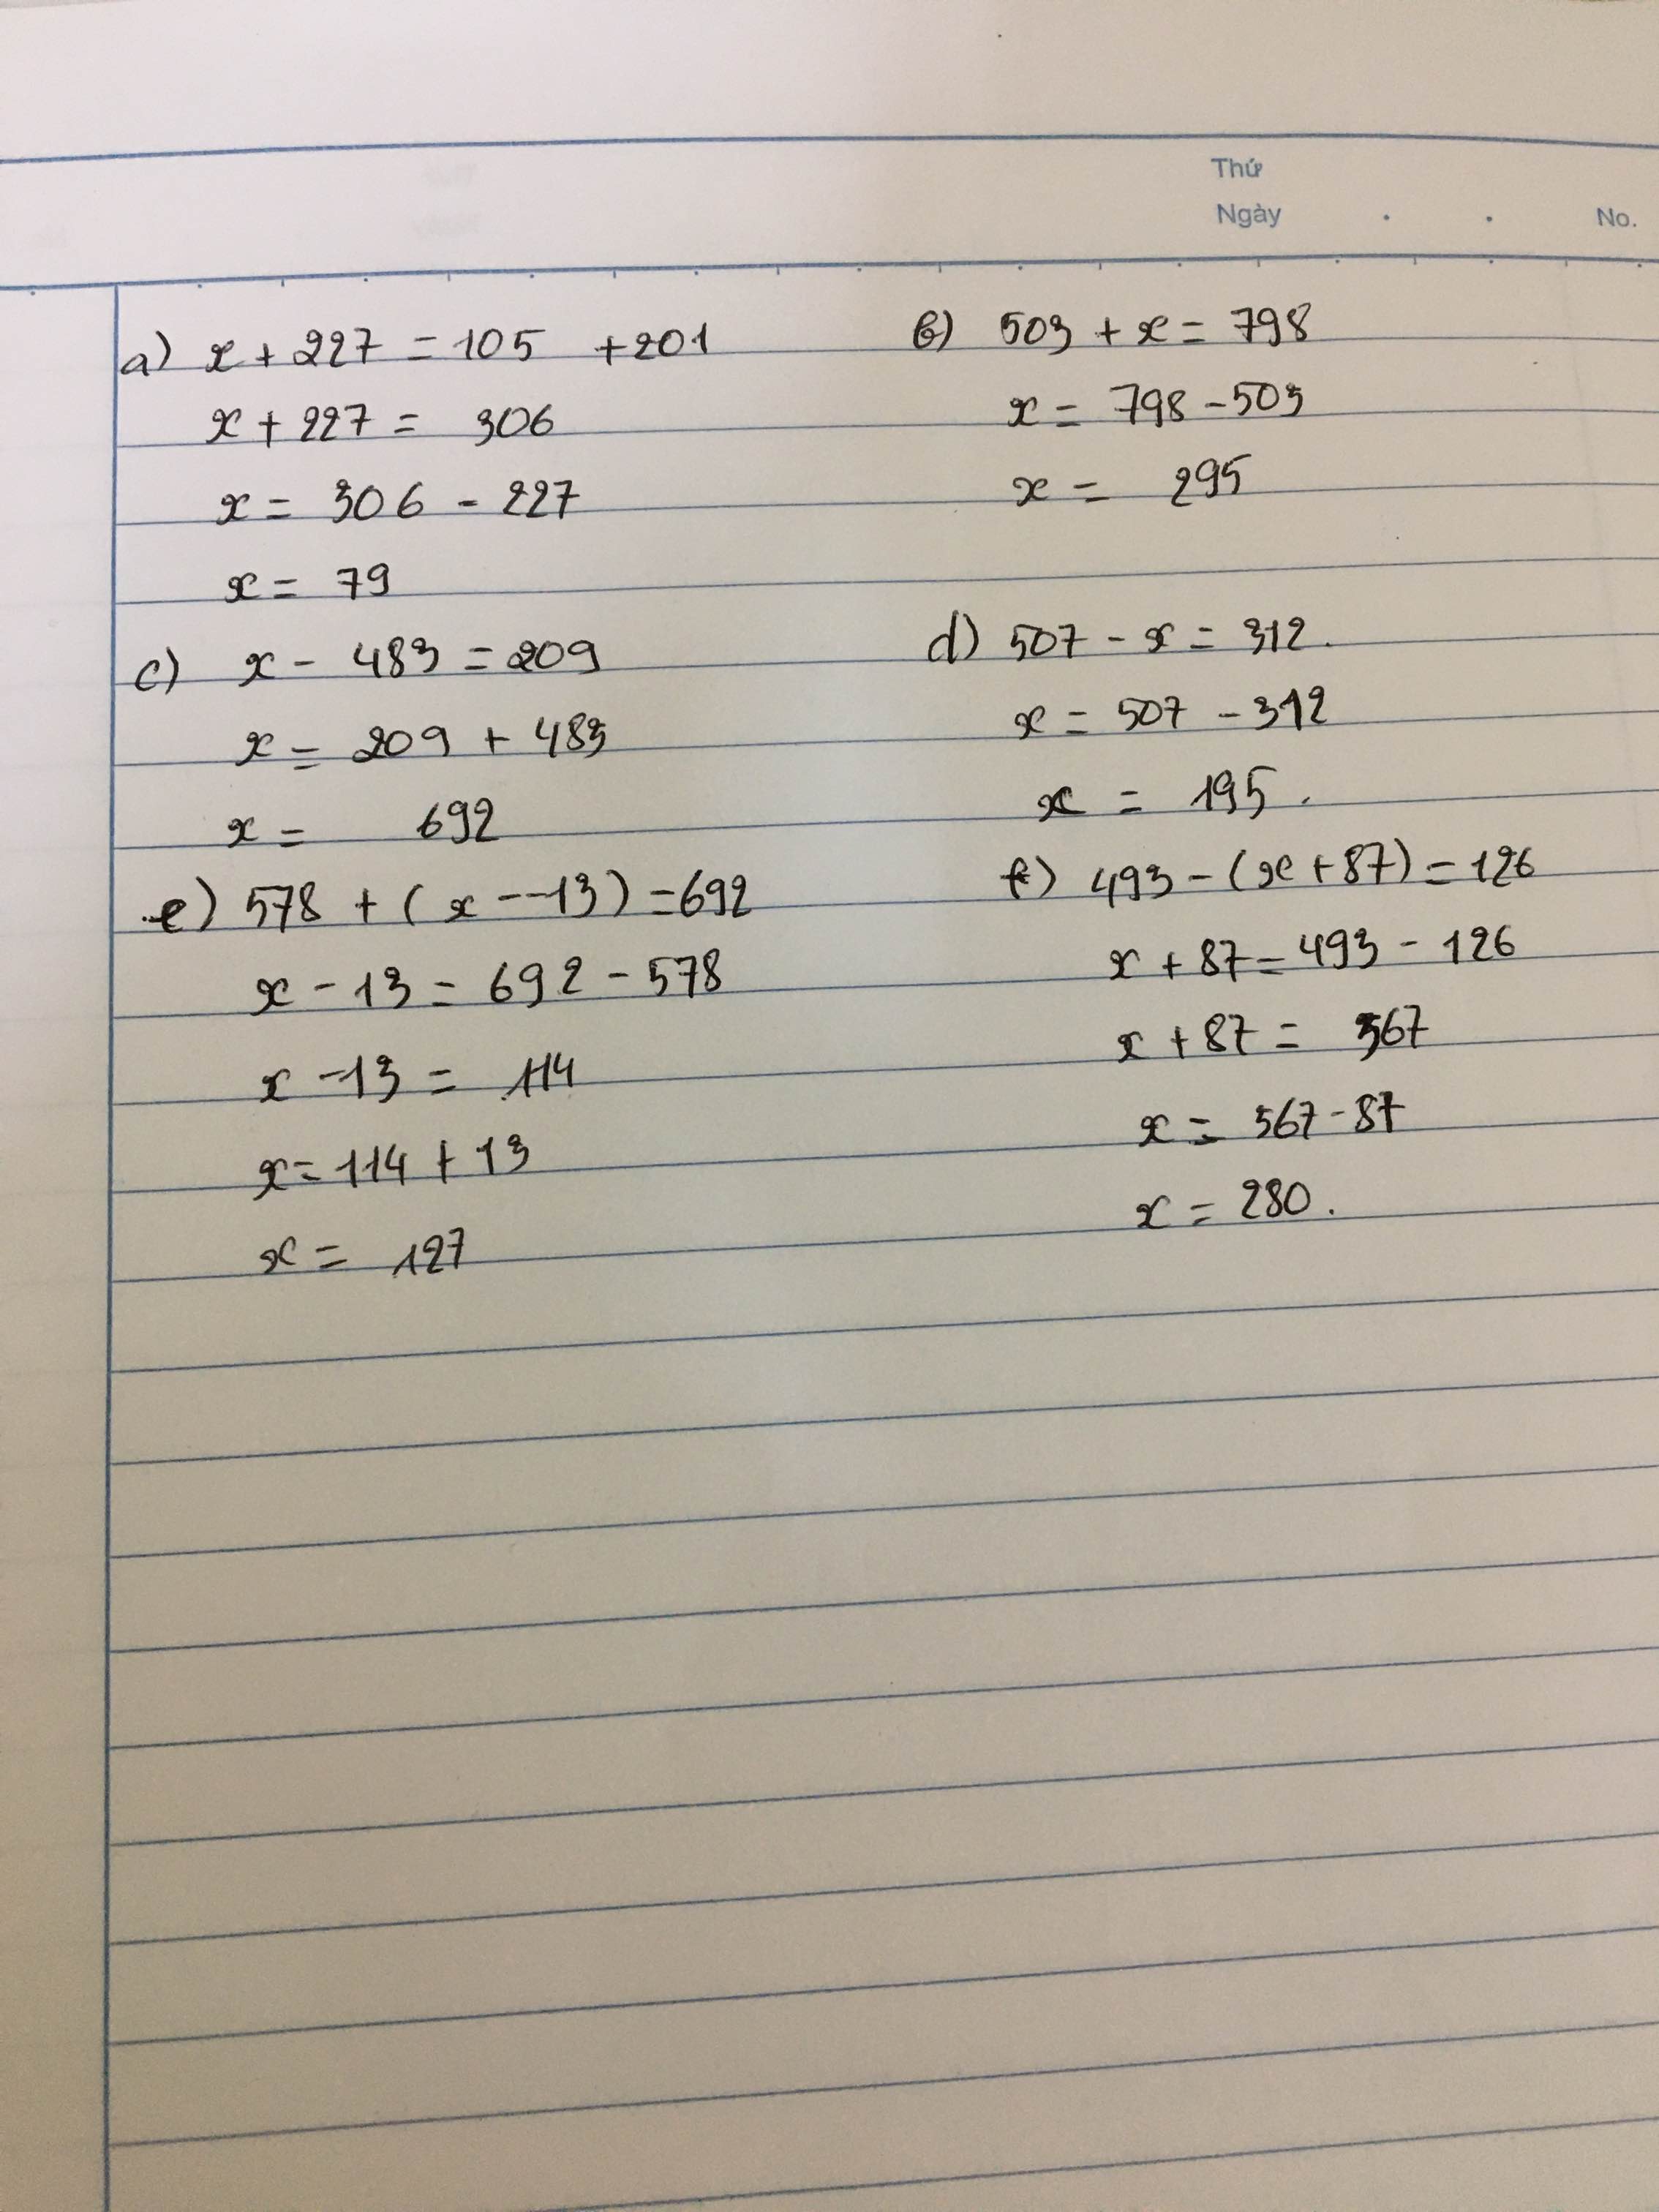 Thứ
Ngày . . No.
a) x + 227 = 105 + 201
x + 227 = 306
x = 306 - 227
x = 79
b) 503 + x = 798
x = 798 - 503
x = 295
c) x - 483 = 209
x = 209 + 483
x = 692
d) 507 - x = 312.
x = 507 - 312
x = 195.
e) 578 + ( x - - 13 ) = 692
x - 13 = 692 - 578
x - 13 = 114
x = 114 + 13
x = 127
f) 493 - (x + 87) = 126
x + 87 = 493 - 126
x + 87 = 367
x = 367 - 87
x = 280.